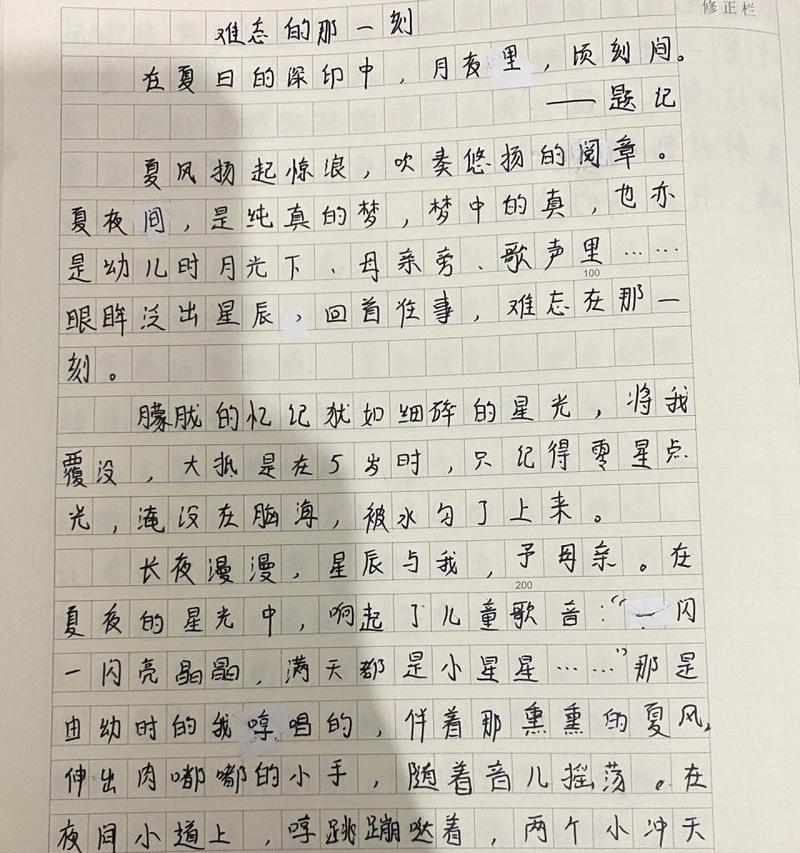 修正栏
难忘的那一刻
在夏日的深印中，月夜里，顷刻间。
——题记
夏风扬起惊浪，吹奏悠扬的阅章。
夏夜间，是纯真的梦，梦中的真，也亦
是幼儿时月光下、母亲旁、歌声里……
100
眼眸泛出星辰，回首往事，难忘在那一
刻。
朦胧的忆记犹如细碎的星光，将我
覆没，大抵是在5岁时，只记得零星点
光，淹没在脑海，被水勾了上来。
长夜漫漫，星辰与我，予母亲。在
200
夏夜的星光中，响起了儿童歌音：“一闪
一闪亮晶晶，满天都是小星星……”那是
由幼时的我哼唱的，伴着那熏熏的夏风，
伸出肉嘟嘟的小手，随着音儿摇荡。在
夜间小道上，哼跳蹦哒着，两个小冲天